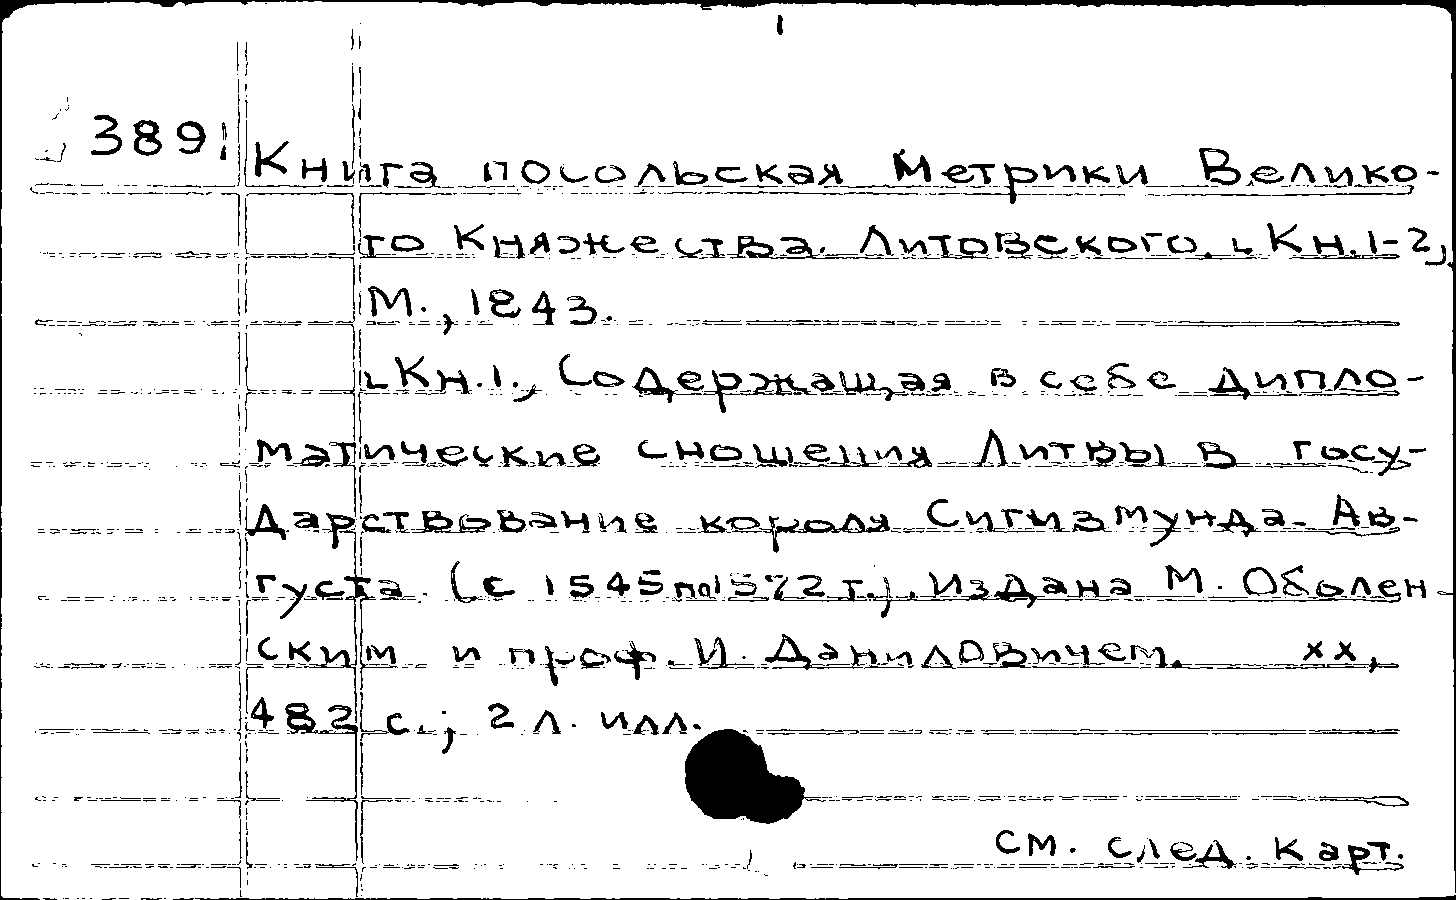 389
Книга посольская Метрики Велико-
го Княжества Литовского. [Кн. 1-2].
М., 1843.
[Кн. 1., Содержащая в себе дипло-
матические сношения Литвы в госу-
дарствование короля Сигизмунда-Ав-
густа (с 1545 по 1572 г.). Издана М. Оболен-
ским и проф. И. Даниловичем. xx,
482 с.; 2 л. илл.
см. след. карт.